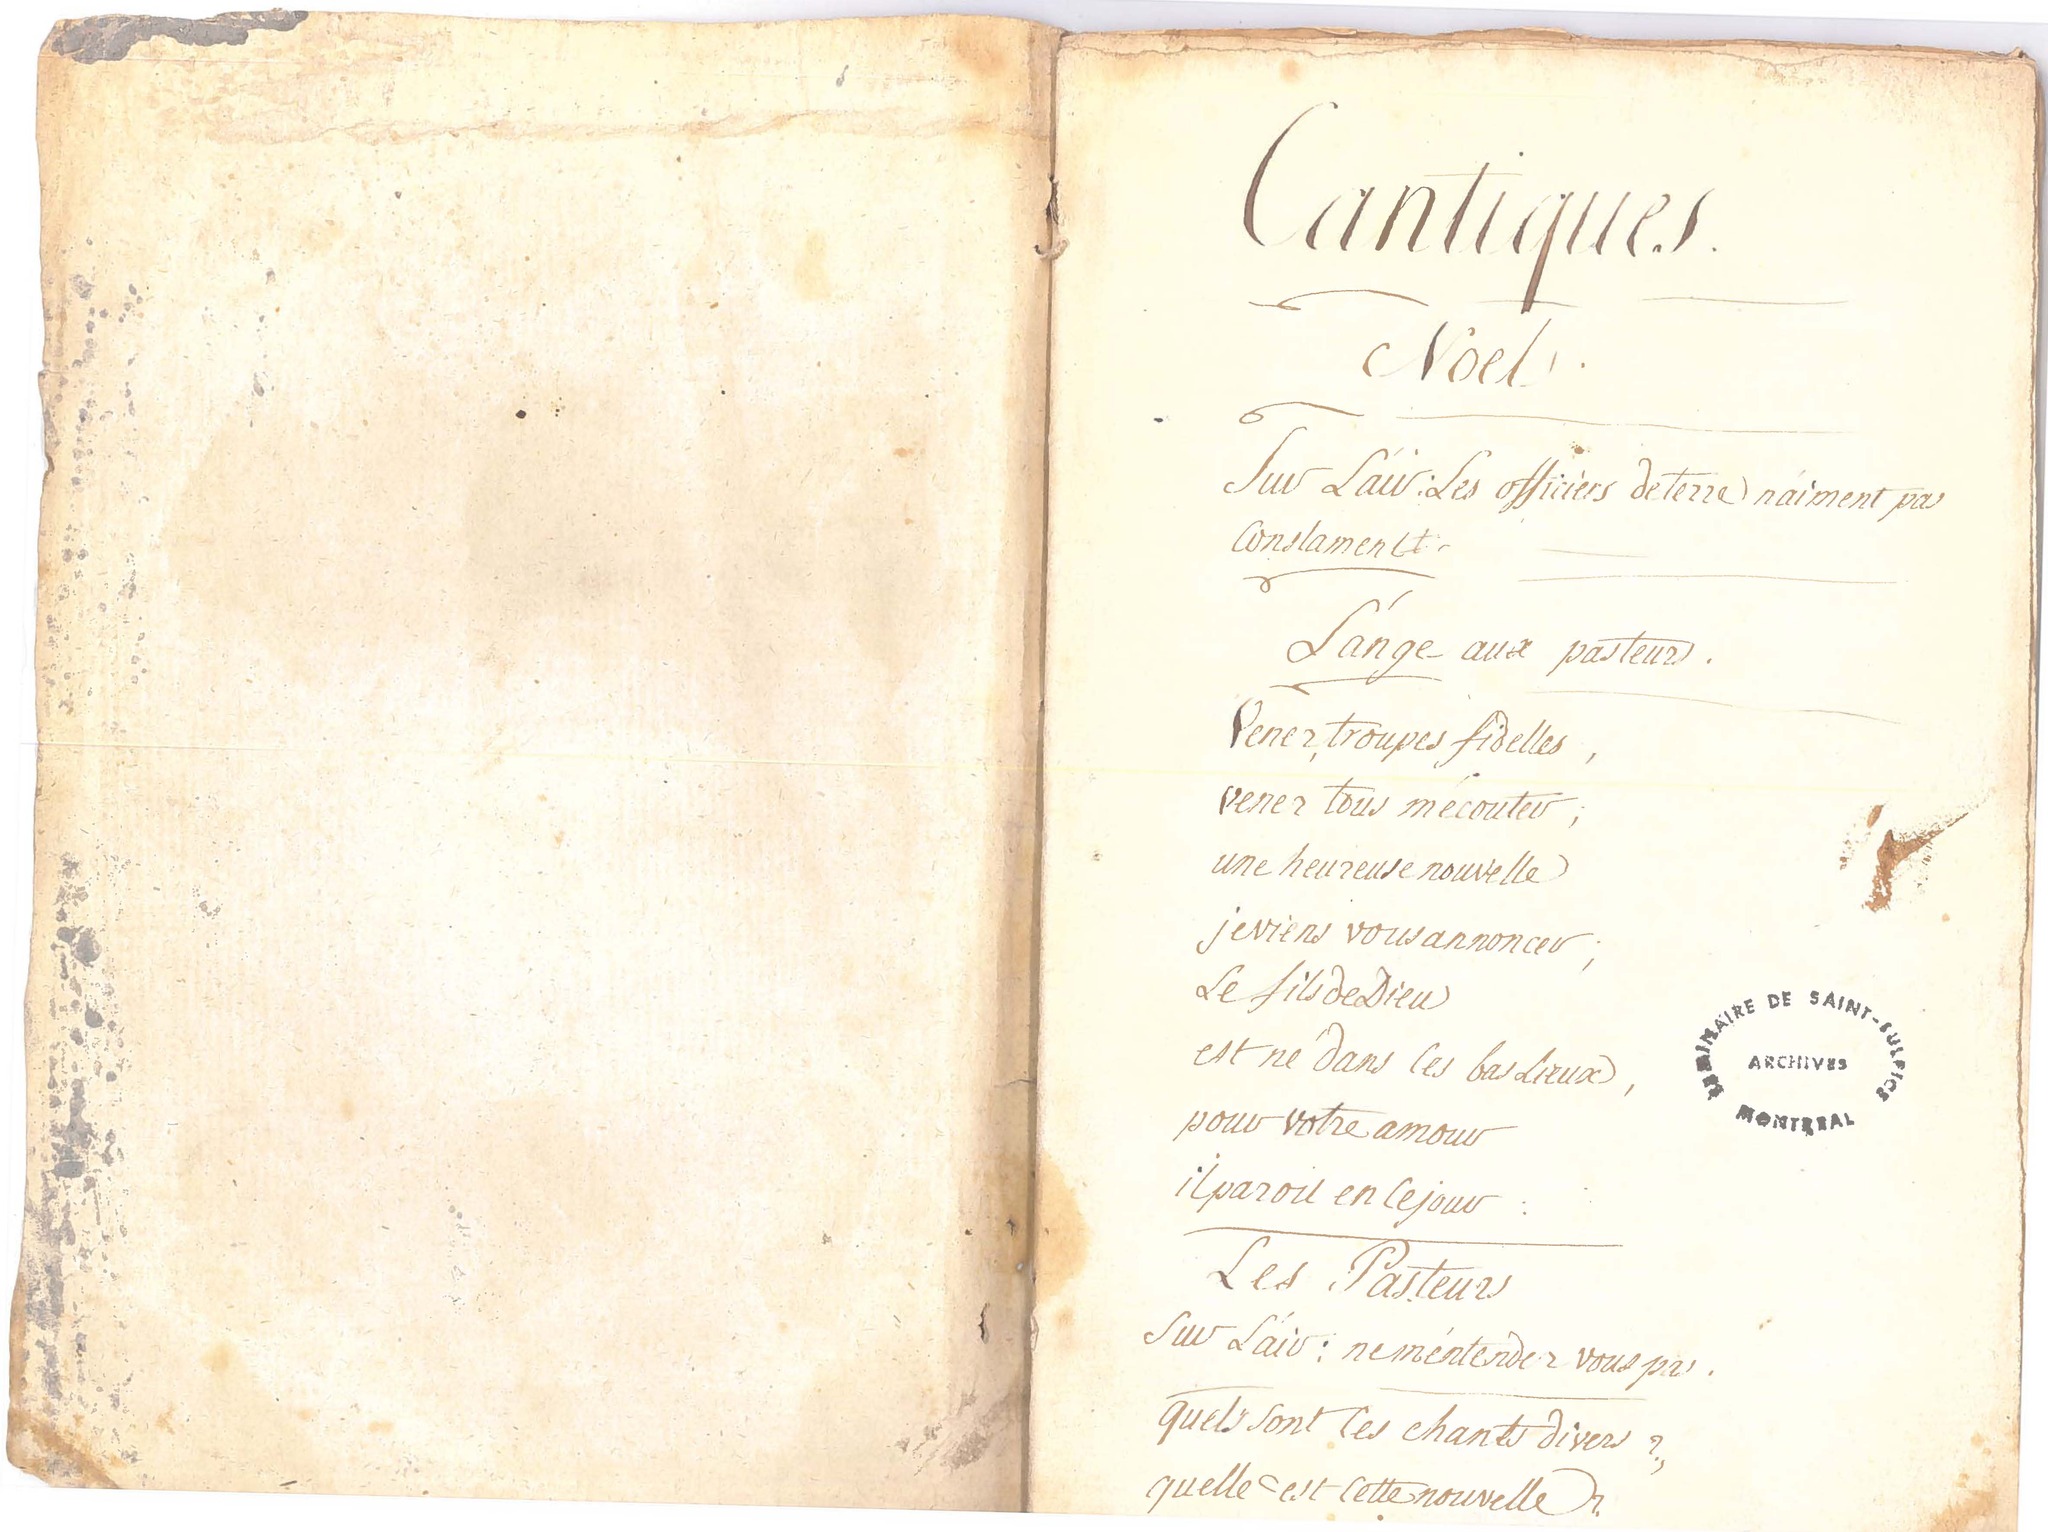 Cantiques.
Noel.
Sur L'air: Les officiers de terre n'aiment pas
Constament.
L'ange aux pasteurs.
Venez, troupes fidelles,
venez tous m'écouter;
une heureuse nouvelle
je viens vous annoncer;
Le fils de Dieu
est né dans ces bas Lieux,
pour votre amour
il paroit en ce jour:
SEMINAIRE DE SAINT-SULPICE
ARCHIVES
MONTREAL
Les Pasteurs
Sur L'air: ne m'entendez vous pas.
quels sont ces chants divers?,
quelle est cette nouvelle?